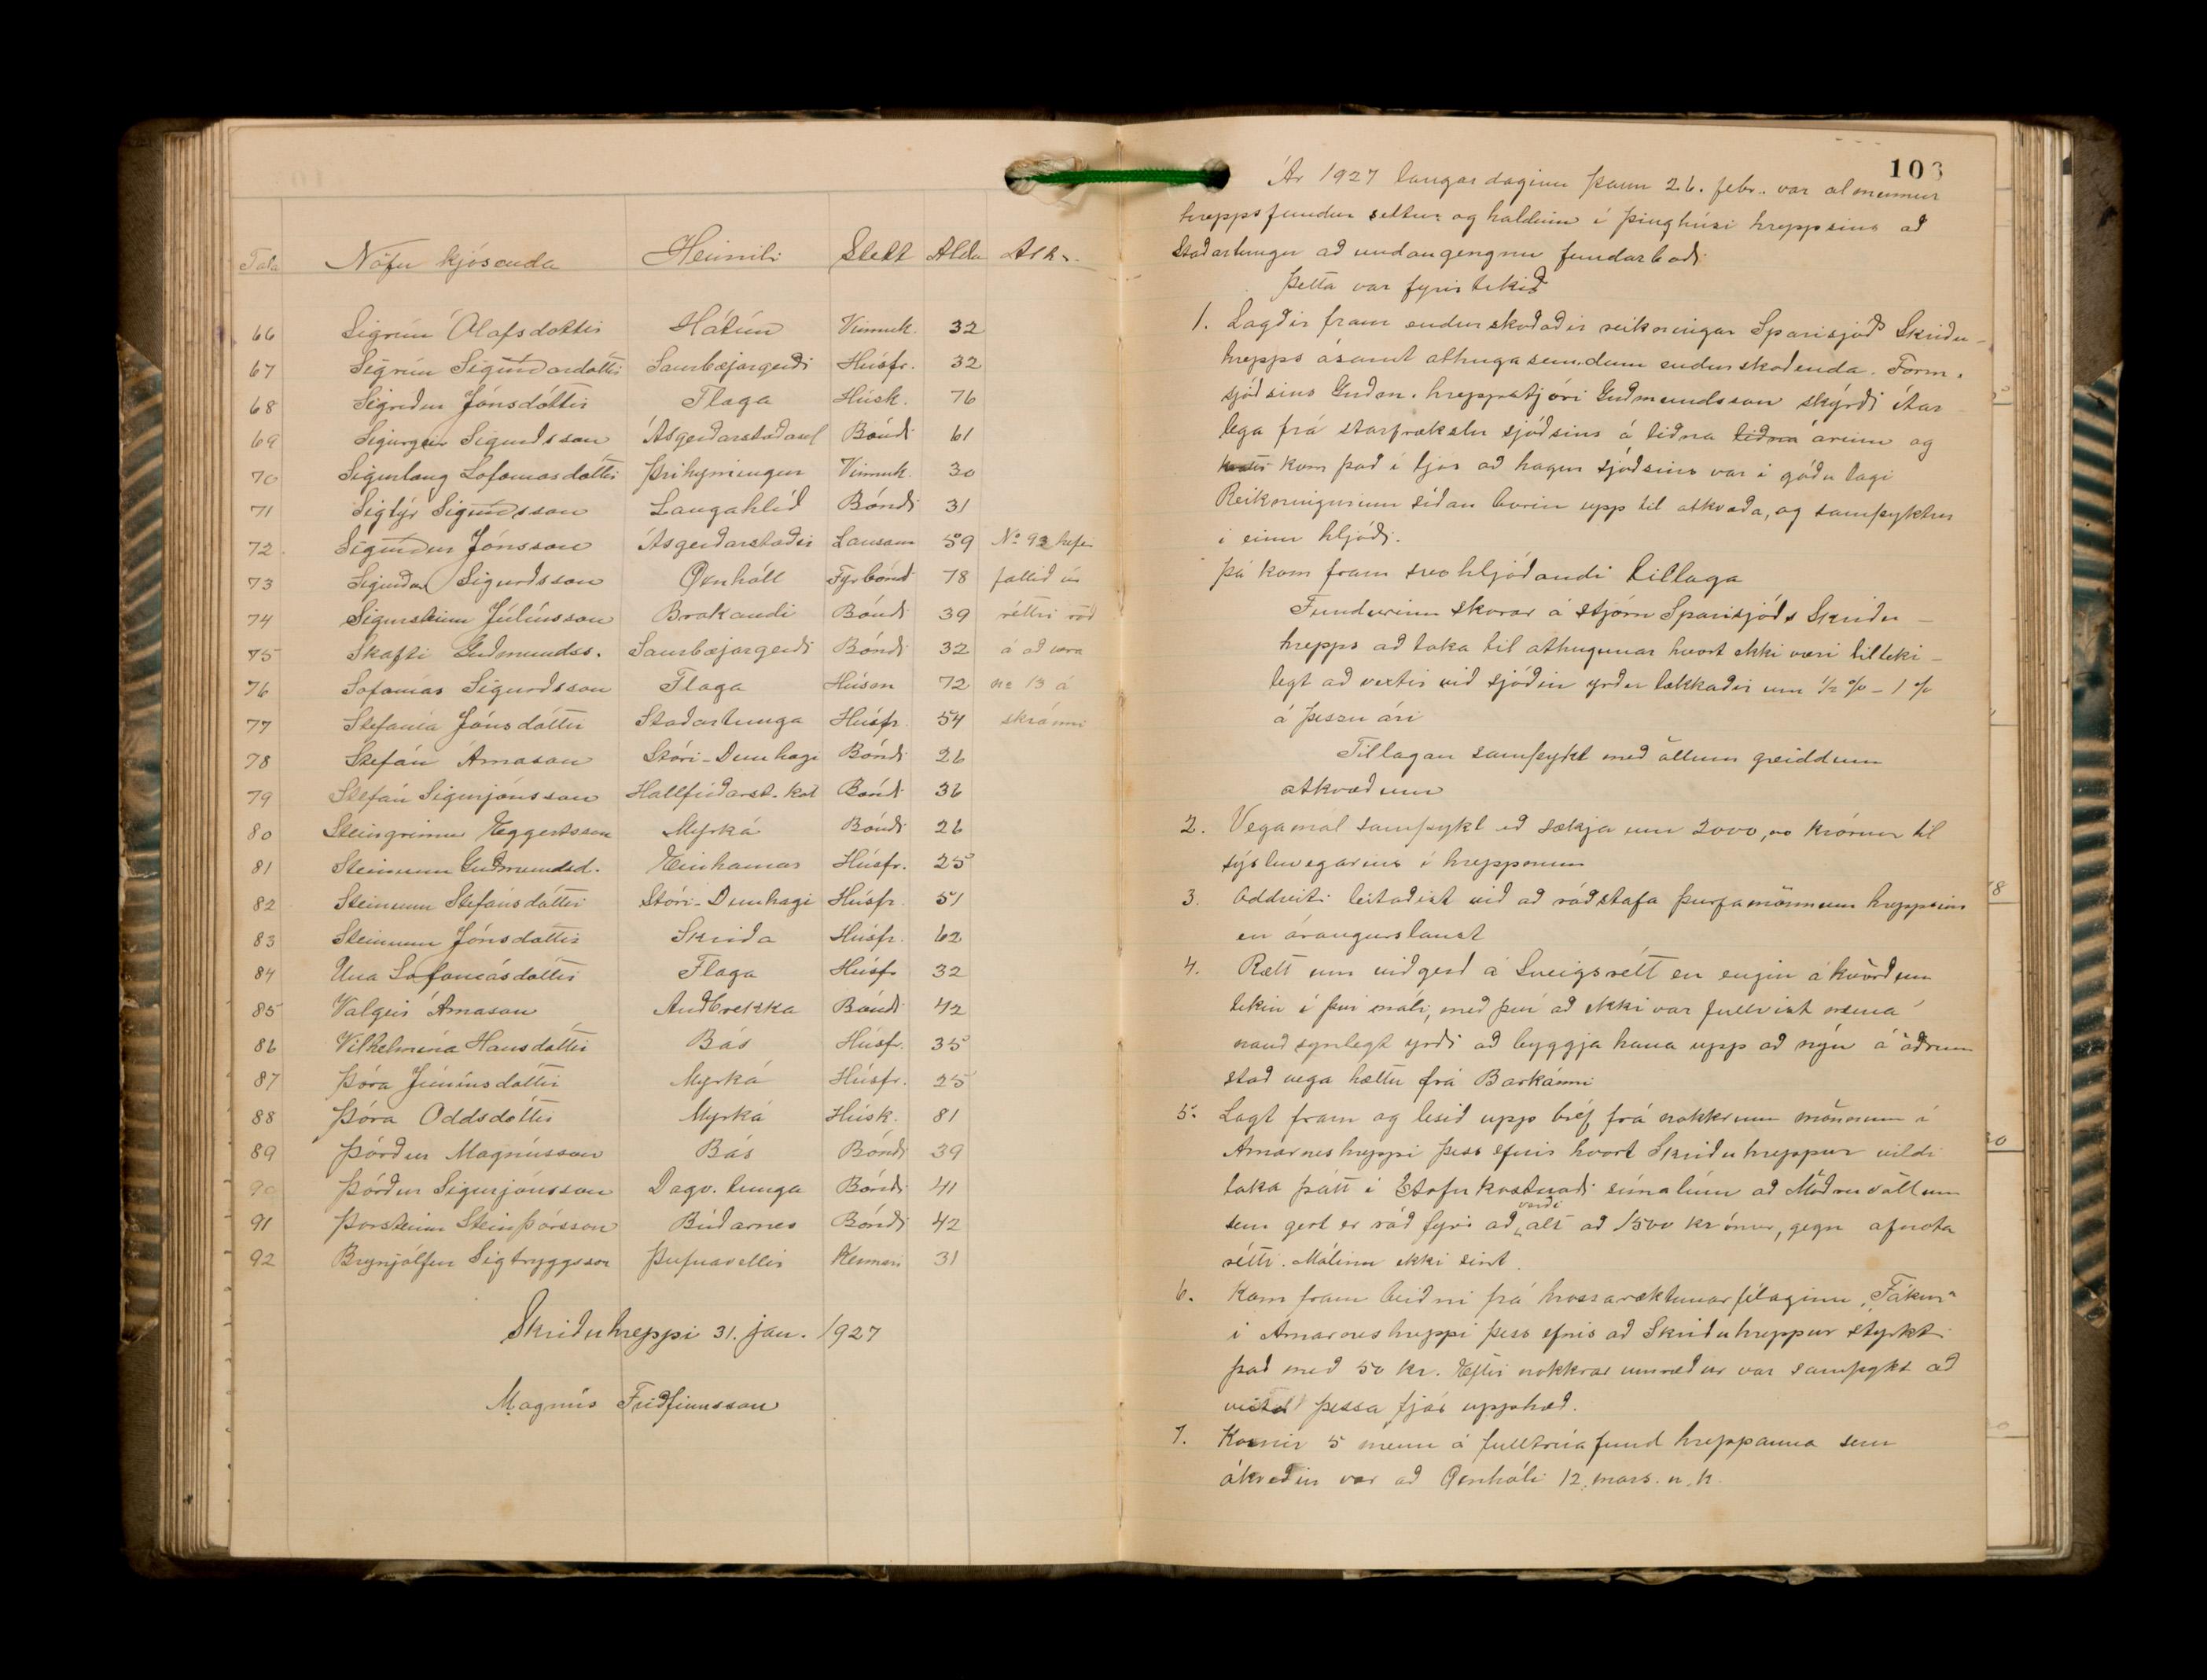 Tala Nöfn kjósenda Heimili Stétt Aldur Ath.
66 Sigrún Ólafsdóttir Hátún Vinnuk. 32
67 Sigrún Sigurðardóttir Saurbæjargerði Húsfr. 32
68 Sigríður Jónsdóttir Flaga Húsk. 76
69 Sigurgeir Sigurðsson Ásgerðarstaðasel Bóndi 61
70 Sigurlaug Sofoníasdóttir Þríhyrningur Vinnuk. 30
71 Sigtýr Sigurðsson Laugahlíð Bóndi 31
72 Sigurður Jónsson Ásgerðarstaðir Lausam 59 No 92 hefir
73 Sigurður Sigurðsson Öxnhóll Fyrbónd 78 fallið úr
74 Sigursteinn Júlíusson Brakandi Bóndi 39 réttri röð
75 Skafti Guðmundss. Saurbæjargerði Bóndi 32 á að vera
76 Sofonías Sigurðsson Flaga Húsm 72 nr 13 á
77 Stefanía Jónsdóttir Staðartunga Húsfr. 54 skránni
78 Stefán Árnason Stóri-Dunhagi Bóndi 26
79 Stefán Sigurjónsson Hallfríðarst.kot Bóndi 36
80 Steingrímur Eggertsson Myrká Bóndi 26
81 Steinunn Guðmundsd. Einhamar Húsfr. 25
82 Steinunn Stefánsdóttir Stóri-Dunhagi Húsfr. 51
83 Steinunn Jónsdóttir Skriða Húsfr. 62
84 Una Sofoníasdóttir Flaga Húsfr 32
85 Valgeir Árnason Auðbrekka Bóndi 42
86 Vilhelmína Hansdóttir Bás Húsfr. 35
87 Þóra Júníusdóttir Myrká Húsfr. 25
88 Þóra Oddsdóttir Myrká Húsk. 81
89 Þórður Magnússon Bás Bóndi 39
90 Þórður Sigurjónsson Dagv.tunga Bóndi 41
91 Þorsteinn Steinþórsson Búðarnes Bóndi 42
92 Brynjólfur Sigtryggsson Þúfnavellir Kennari 31
Skriðuhreppi 31. jan. 1927
Magnús Friðfinnsson
103
Ár 1927 laugardaginn þann 26. febr. var almennur
hreppsfundur settur og haldinn í þinghúsi hreppsins að
Staðartungu að undangengnu fundarboði
Þetta var fyrir tekið
1. Lagðir fram endurskoðaðir reikningar Sparisjóðs Skriðu-
hrepps ásamt athugasemdum endurskoðenda. Form.
sjóðsins Guðm. hreppstjóri Guðmundsson skýrði ítar
lega frá starfrækslu sjóðsins á liðna liðna árinu og
kom það í ljós að hagur sjóðsins var í góðu lagi
Reikningurinn síðan borin upp til atkvæða, og samþyktur
í einu hljóði.
Þá kom fram svohljóðandi tillaga
Fundurinn skorar á stjórn Sparisjóðs Skriðu-
hrepps að taka til athugunar hvort ekki væri tilteki-
legt að vextir við sjóðin yrðu lækkaðir um ½ % - 1 %
á þessu ári
Tillagan samþykt með öllum greiddum
atkvæðum
2. Vegamál samþykt að sækja um 2000,00 krónur til
sýsluvegarins í hreppnum
3. Oddviti leitaðist við að ráðstafa þurfamönnum hreppsins
en árangurslaust
4. Rætt um viðgerð á Sveigsrétt en engin ákvörðun
tekin í því máli, með því að ekki var fullvíst nema
nauðsynlegt yrði að byggja hana upp að nýu á öðrum
stað vega hættu frá Barkánni
5. Lagt fram og lesið upp bréf frá nokkrum mönnum í
Arnarneshreppi þess efnis hvort Skriðuhreppur vildi
taka þátt í Stofnkostnaði símalínu að Möðruvöllum
sem gert er ráð fyrir að verði alt að 1500 krónur, gegn afnota
rétti. Málinu ekki sint.
6. Kom fram beiðni frá hrossaræktunarfélaginu „Fákur"
í Arnarneshreppi þess efnis að Skriðuhreppur styrkti
það með 50 kr. Eftir nokkrar umræður var samþykt að
veita þessa fjár upphæð.
7. Kosnir 5 menn á fulltrúafund hreppanna sem
ákveðin var að Öxnhóli 12. mars. n.k.